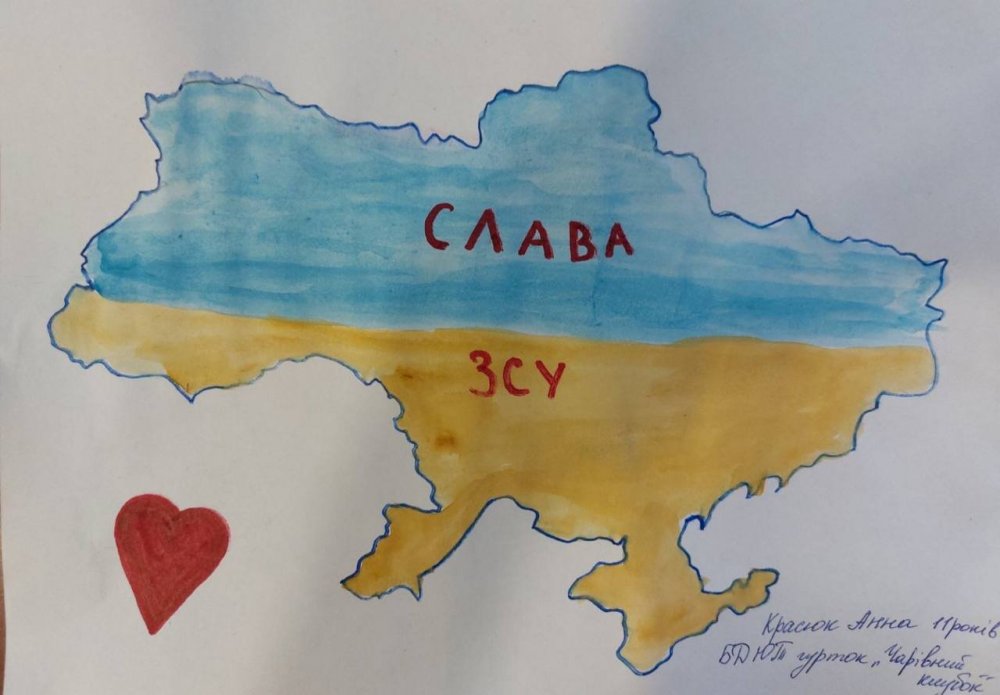 СЛАВА
ЗСУ
Красюк Анна 11 років
БДЮТ гурток „Чарівний
клубок"